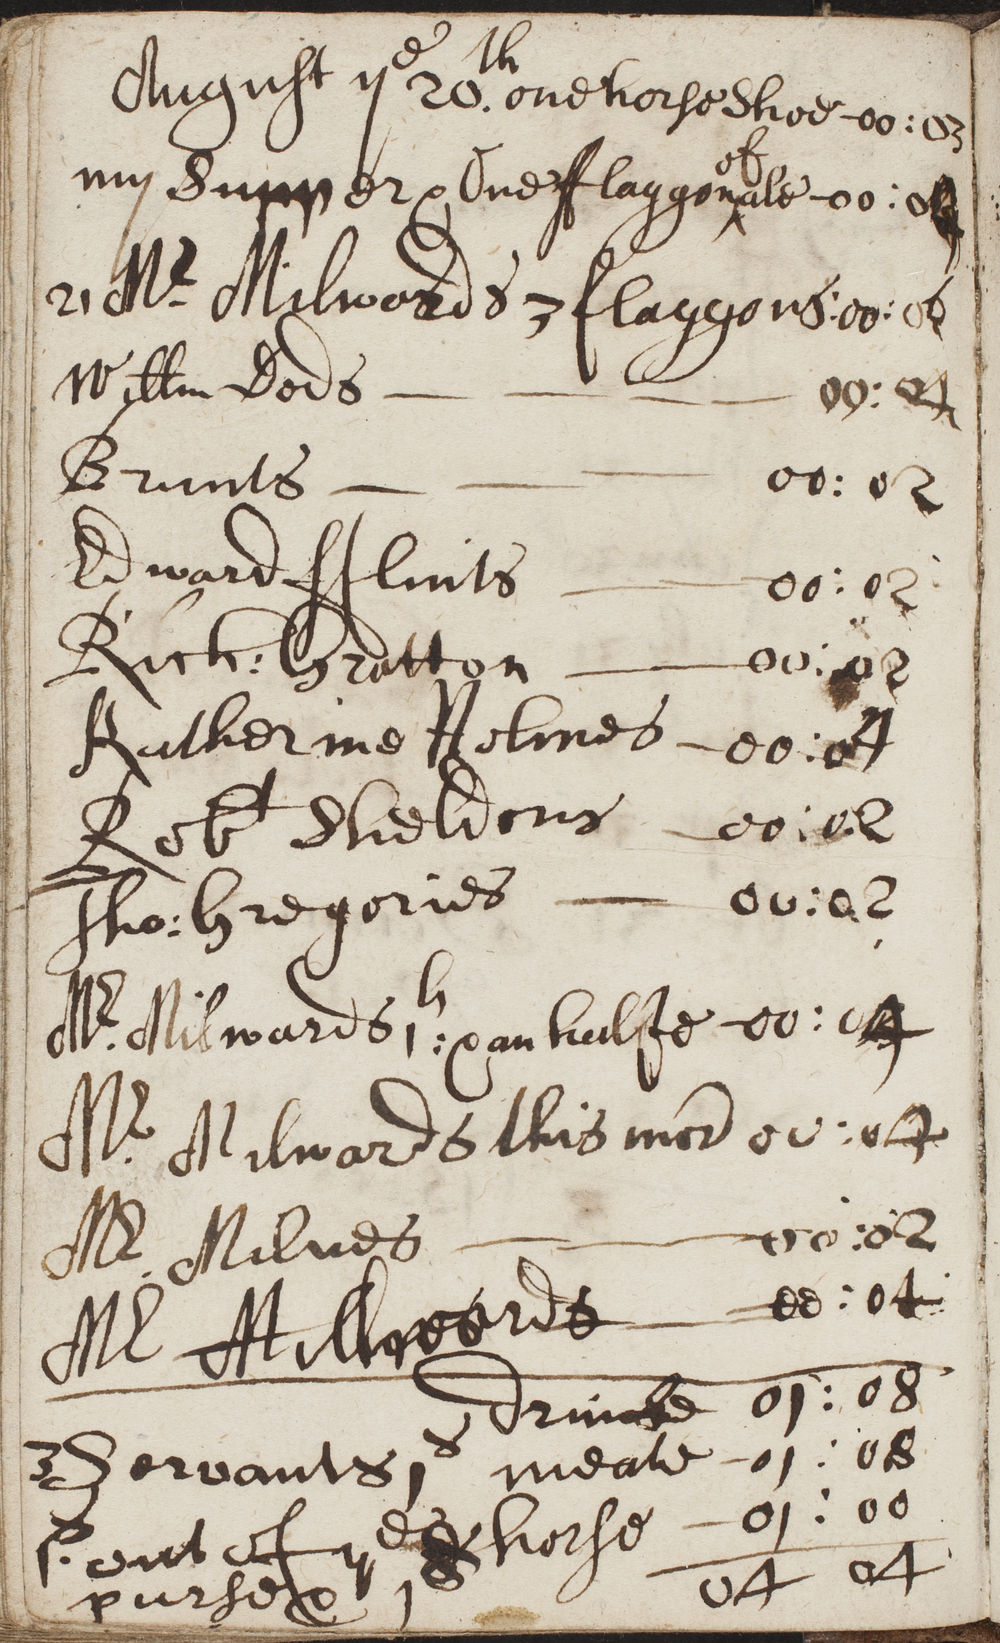 August ye 20th. one horse Shoe - 00 : 03
my Supper & One fflaggon of ale - 00 : 04
21 Mr. Milwards 3 flaggons : 00 : 06
Willm Dods — — — — 00 : 04
Brunts — — — 00 : 02
Edward fflints — 00 : 02
Rich: Gratton — 00 : 02
Katherine Holmes — 00 : 04
Robt Sheldons — 00 : 02
Tho: Gregories — 00 : 02
Mr. Milwards 1h: & an halfe - 00 : 04
Mr. Milwards this mor 00 : 04
Mr. Milnes — 00 : 02
Mr Millwards — 00 : 04
drinke 01 : 08
3 Servants 1s meate - 01 : 08
P. out of ye horse - 01 : 00
purse 1s 04 04